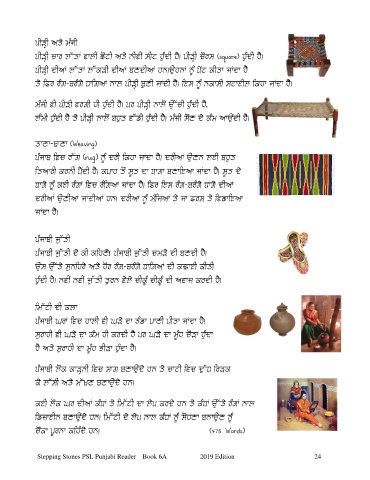 ਪੀੜ੍ਹੀ ਅਤੇ ਮੰਜੀ
ਪੀੜ੍ਹੀ ਚਾਰ ਲੱਤਾਂ ਵਾਲੀ ਛੋਟੀ ਅਤੇ ਨੀਵੀਂ ਸੀਟ ਹੁੰਦੀ ਹੈ। ਪੀੜ੍ਹੀ ਚੌਰਸ (square) ਹੁੰਦੀ ਹੈ।
ਪੀੜ੍ਹੀ ਦੀਆਂ ਲੱਤਾਂ ਲੱਕੜੀ ਦੀਆਂ ਬਣਦੀਆਂ ਹਨ।ਉਹਨਾਂ ਨੂੰ ਪੇਂਟ ਕੀਤਾ ਜਾਂਦਾ ਹੈ
ਤੇ ਫਿਰ ਰੰਗ-ਬਰੰਗੇ ਧਾਗਿਆਂ ਨਾਲ ਪੀੜ੍ਹੀ ਬੁਣੀ ਜਾਂਦੀ ਹੈ। ਇਸ ਨੂੰ ਨਕਾਸ਼ੀ ਸਟਾਈਲ ਕਿਹਾ ਜਾਂਦਾ ਹੈ।
ਮੰਜੀ ਵੀ ਪੀੜ੍ਹੀ ਵਰਗੀ ਹੀ ਹੁੰਦੀ ਹੈ। ਪਰ ਪੀੜ੍ਹੀ ਨਾਲੋਂ ਉੱਚੀ ਹੁੰਦੀ ਹੈ,
ਲੰਮੀ ਹੁੰਦੀ ਹੈ ਤੇ ਪੀੜ੍ਹੀ ਨਾਲੋਂ ਬਹੁਤ ਵੱਡੀ ਹੁੰਦੀ ਹੈ। ਮੰਜੀ ਸੌਣ ਦੇ ਕੰਮ ਆਉਂਦੀ ਹੈ।
ਤਾਣਾ-ਬਾਣਾ (Weaving)
ਪੰਜਾਬ ਵਿਚ ਰੱਗ (rug) ਨੂੰ ਦਰੀ ਕਿਹਾ ਜਾਂਦਾ ਹੈ। ਦਰੀਆਂ ਉਣਨ ਲਈ ਬਹੁਤ
ਤਿਆਰੀ ਕਰਨੀ ਪੈਂਦੀ ਹੈ। ਕਪਾਹ ਤੋਂ ਸੂਤ ਦਾ ਧਾਗਾ ਬਣਾਇਆ ਜਾਂਦਾ ਹੈ। ਸੂਤ ਦੇ
ਧਾਗੇ ਨੂੰ ਕਈ ਰੰਗਾਂ ਵਿਚ ਰੰਗਿਆ ਜਾਂਦਾ ਹੈ। ਫਿਰ ਇਸ ਰੰਗ-ਬਰੰਗੇ ਧਾਗੇ ਦੀਆਂ
ਦਰੀਆਂ ਉਣੀਆਂ ਜਾਂਦੀਆਂ ਹਨ। ਦਰੀਆਂ ਨੂੰ ਮੰਜਿਆਂ ਤੇ ਜਾਂ ਫ਼ਰਸ਼ ਤੇ ਵਿਛਾਇਆ
ਜਾਂਦਾ ਹੈ।
ਪੰਜਾਬੀ ਜੁੱਤੀ
ਪੰਜਾਬੀ ਜੁੱਤੀ ਦੇ ਕੀ ਕਹਿਣੇ! ਪੰਜਾਬੀ ਜੁੱਤੀ ਚਮੜੇ ਦੀ ਬਣਦੀ ਹੈ।
ਉਸ ਉੱਤੇ ਸੁਨਹਿਰੇ ਅਤੇ ਹੋਰ ਰੰਗ-ਬਰੰਗੇ ਧਾਗਿਆਂ ਦੀ ਕਢਾਈ ਕੀਤੀ
ਹੁੰਦੀ ਹੈ। ਨਵੀਂ ਨਵੀਂ ਜੁੱਤੀ ਤੁਰਨ ਵੇਲੇ ਚੀਕੂੰ ਚੀਕੂੰ ਦੀ ਅਵਾਜ਼ ਕਰਦੀ ਹੈ।
ਮਿੱਟੀ ਦੀ ਕਲਾ
ਪੰਜਾਬੀ ਘਰਾਂ ਵਿਚ ਹਾਲੀ ਵੀ ਘੜੇ ਦਾ ਠੰਡਾ ਪਾਣੀ ਪੀਤਾ ਜਾਂਦਾ ਹੈ।
ਸੁਰਾਹੀ ਵੀ ਘੜੇ ਦਾ ਕੰਮ ਹੀ ਕਰਦੀ ਹੈ ਪਰ ਘੜੇ ਦਾ ਮੂੰਹ ਚੌੜਾ ਹੁੰਦਾ
ਹੈ ਅਤੇ ਸੁਰਾਹੀ ਦਾ ਮੂੰਹ ਭੀੜਾ ਹੁੰਦਾ ਹੈ।
ਪੰਜਾਬੀ ਲੋਕ ਕਾੜ੍ਹਨੀ ਵਿਚ ਸਾਗ ਬਣਾਉਂਦੇ ਹਨ ਤੇ ਚਾਟੀ ਵਿਚ ਦੁੱਧ ਰਿੜਕ
ਕੇ ਲੱਸੀ ਅਤੇ ਮੱਖਣ ਬਣਾਉਂਦੇ ਹਨ।
ਕਈ ਲੋਕ ਘਰ ਦੀਆਂ ਕੰਧਾਂ ਤੇ ਮਿੱਟੀ ਦਾ ਲੇਪ ਕਰਦੇ ਹਨ ਤੇ ਕੰਧਾਂ ਉੱਤੇ ਰੰਗਾਂ ਨਾਲ
ਡਿਜ਼ਾਈਨ ਬਣਾਉਂਦੇ ਹਨ। ਮਿੱਟੀ ਦੇ ਲੇਪ ਨਾਲ ਕੰਧਾਂ ਨੂੰ ਸੋਹਣਾ ਬਨਾਉਣ ਨੂੰ
ਚੌਂਕਾ ਪੂਰਨਾ ਕਹਿੰਦੇ ਹਨ। (475 Words)
Stepping Stones PSL Punjabi Reader Book 6A 2019 Edition 24